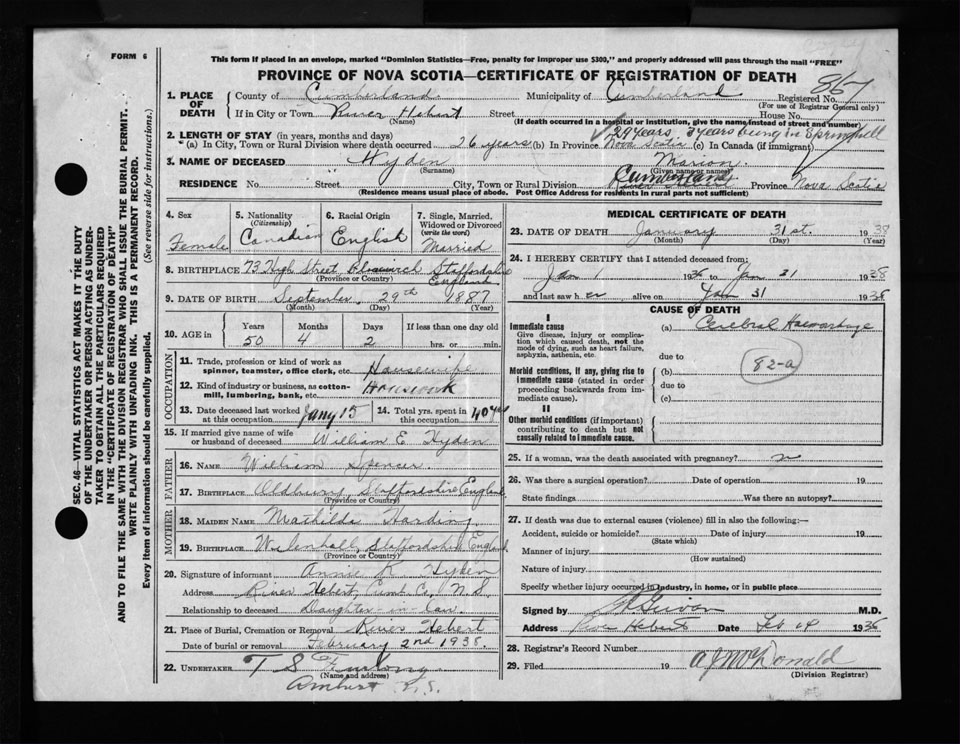 FORM 6
This form if placed in an envelope, marked "Dominion Statistics—Free, penalty for improper use $300," and properly addressed will pass through the mail "FREE"
PROVINCE OF NOVA SCOTIA—CERTIFICATE OF REGISTRATION OF DEATH
1. PLACE OF DEATH
County of Cumberland Municipality of Cumberland Registered No. 867
(For use of Registrar General only)
If in City or Town River Hebert Street House No.
(Name) (If death occurred in a hospital or institution, give the name instead of street and number)
2. LENGTH OF STAY (in years, months and days) 29 years 3 years being in Springhill
(a) In City, Town or Rural Division where death occurred 26 years (b) In Province Nova Scotia (c) In Canada (if immigrant)
3. NAME OF DECEASED Hyden Marion
(Surname) (Given name or names)
RESIDENCE No. Street City, Town or Rural Division Cumberland Province Nova Scotia
(Residence means usual place of abode. Post Office Address for residents in rural parts not sufficient)
4. Sex Female
5. Nationality (Citizenship) Canadian
6. Racial Origin English
7. Single, Married, Widowed or Divorced (write the word) Married
8. BIRTHPLACE 73 High Street, Staffordshire England
(Province or Country)
9. DATE OF BIRTH September 29th 1887
(Month) (Day) (Year)
10. AGE in Years 50 Months 4 Days 2 If less than one day old hrs. or min.
OCCUPATION
11. Trade, profession or kind of work as spinner, teamster, office clerk, etc. Housewife
12. Kind of industry or business, as cotton-mill, lumbering, bank, etc. Housework
13. Date deceased last worked at this occupation Jany 15
14. Total yrs. spent in this occupation 40 yrs
15. If married give name of wife or husband of deceased William E Hyden
FATHER
16. NAME William Spencer
17. BIRTHPLACE Oldbury, Staffordshire England
(Province or Country)
MOTHER
18. MAIDEN NAME Mathilda Harding
19. BIRTHPLACE Willenhall, Staffordshire England
(Province or Country)
20. Signature of informant Annie K Hyden
Address River Hebert, Cumb. Co., N.S.
Relationship to deceased Daughter-in-law.
21. Place of Burial, Cremation or Removal River Hebert
Date of burial or removal February 2nd 1938.
22. UNDERTAKER T S Furlong
(Name and address)
Amherst N.S.
MEDICAL CERTIFICATE OF DEATH
23. DATE OF DEATH January 31st. 1938
(Month) (Day) (Year)
24. I HEREBY CERTIFY that I attended deceased from:
Jan 1 1938 to Jan 31 1938
and last saw her alive on Jan 31 1938
CAUSE OF DEATH
I
Immediate cause
Give disease, injury or complication which caused death, not the mode of dying, such as heart failure, asphyxia, asthenia, etc.
(a) Cerebral Haemorrhage
due to
Morbid conditions, if any, giving rise to immediate cause (stated in order proceeding backwards from immediate cause).
(b) 82-a
due to
(c)
II
Other morbid conditions (if important) contributing to death but not causally related to immediate cause.
25. If a woman, was the death associated with pregnancy? no
26. Was there a surgical operation? Date of operation 19
State findings Was there an autopsy?
27. If death was due to external causes (violence) fill in also the following:—
Accident, suicide or homicide? Date of injury 19
(State which)
Manner of injury
(How sustained)
Nature of injury
Specify whether injury occurred in industry, in home, or in public place
Signed by M.D.
Address River Hebert Date Feb 1938
28. Registrar's Record Number
29. Filed 19 A J McDonald
(Division Registrar)
SEC. 46—VITAL STATISTICS ACT MAKES IT THE DUTY
OF THE UNDERTAKER OR PERSON ACTING AS UNDER-
TAKER TO OBTAIN ALL THE PARTICULARS REQUIRED
IN THE "CERTIFICATE OF REGISTRATION OF DEATH"
AND TO FILE THE SAME WITH THE DIVISION REGISTRAR WHO SHALL ISSUE THE BURIAL PERMIT.
WRITE PLAINLY WITH UNFADING INK. THIS IS A PERMANENT RECORD.
Every item of information should be carefully supplied. (See reverse side for instructions.)